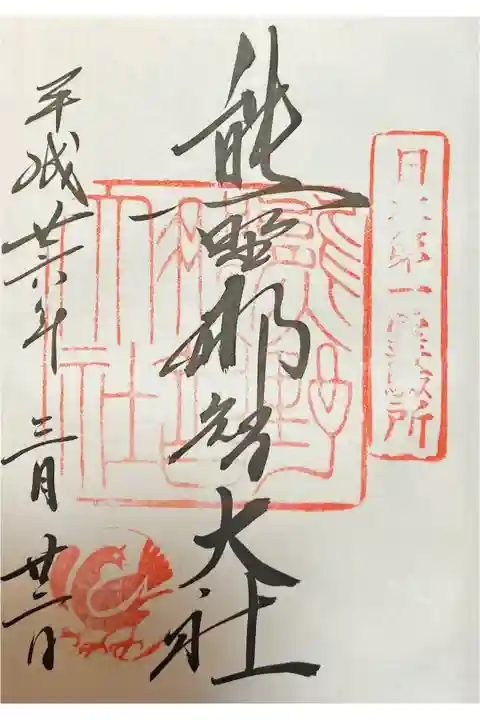 日本第一霊験所
熊野那智大社
平成廿六年三月廿二日